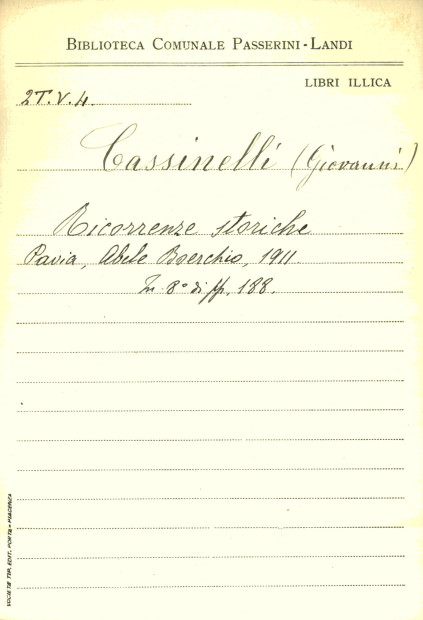 BIBLIOTECA COMUNALE PASSERINI-LANDI
LIBRI ILLICA
2T.V.4.
Cassinelli (Giovanni)
Ricorrenze storiche
Pavia, Abele Boerchio, 1911.
In 8° di pp. 188.
TIP. EDIT. PORTA - PIACENZA